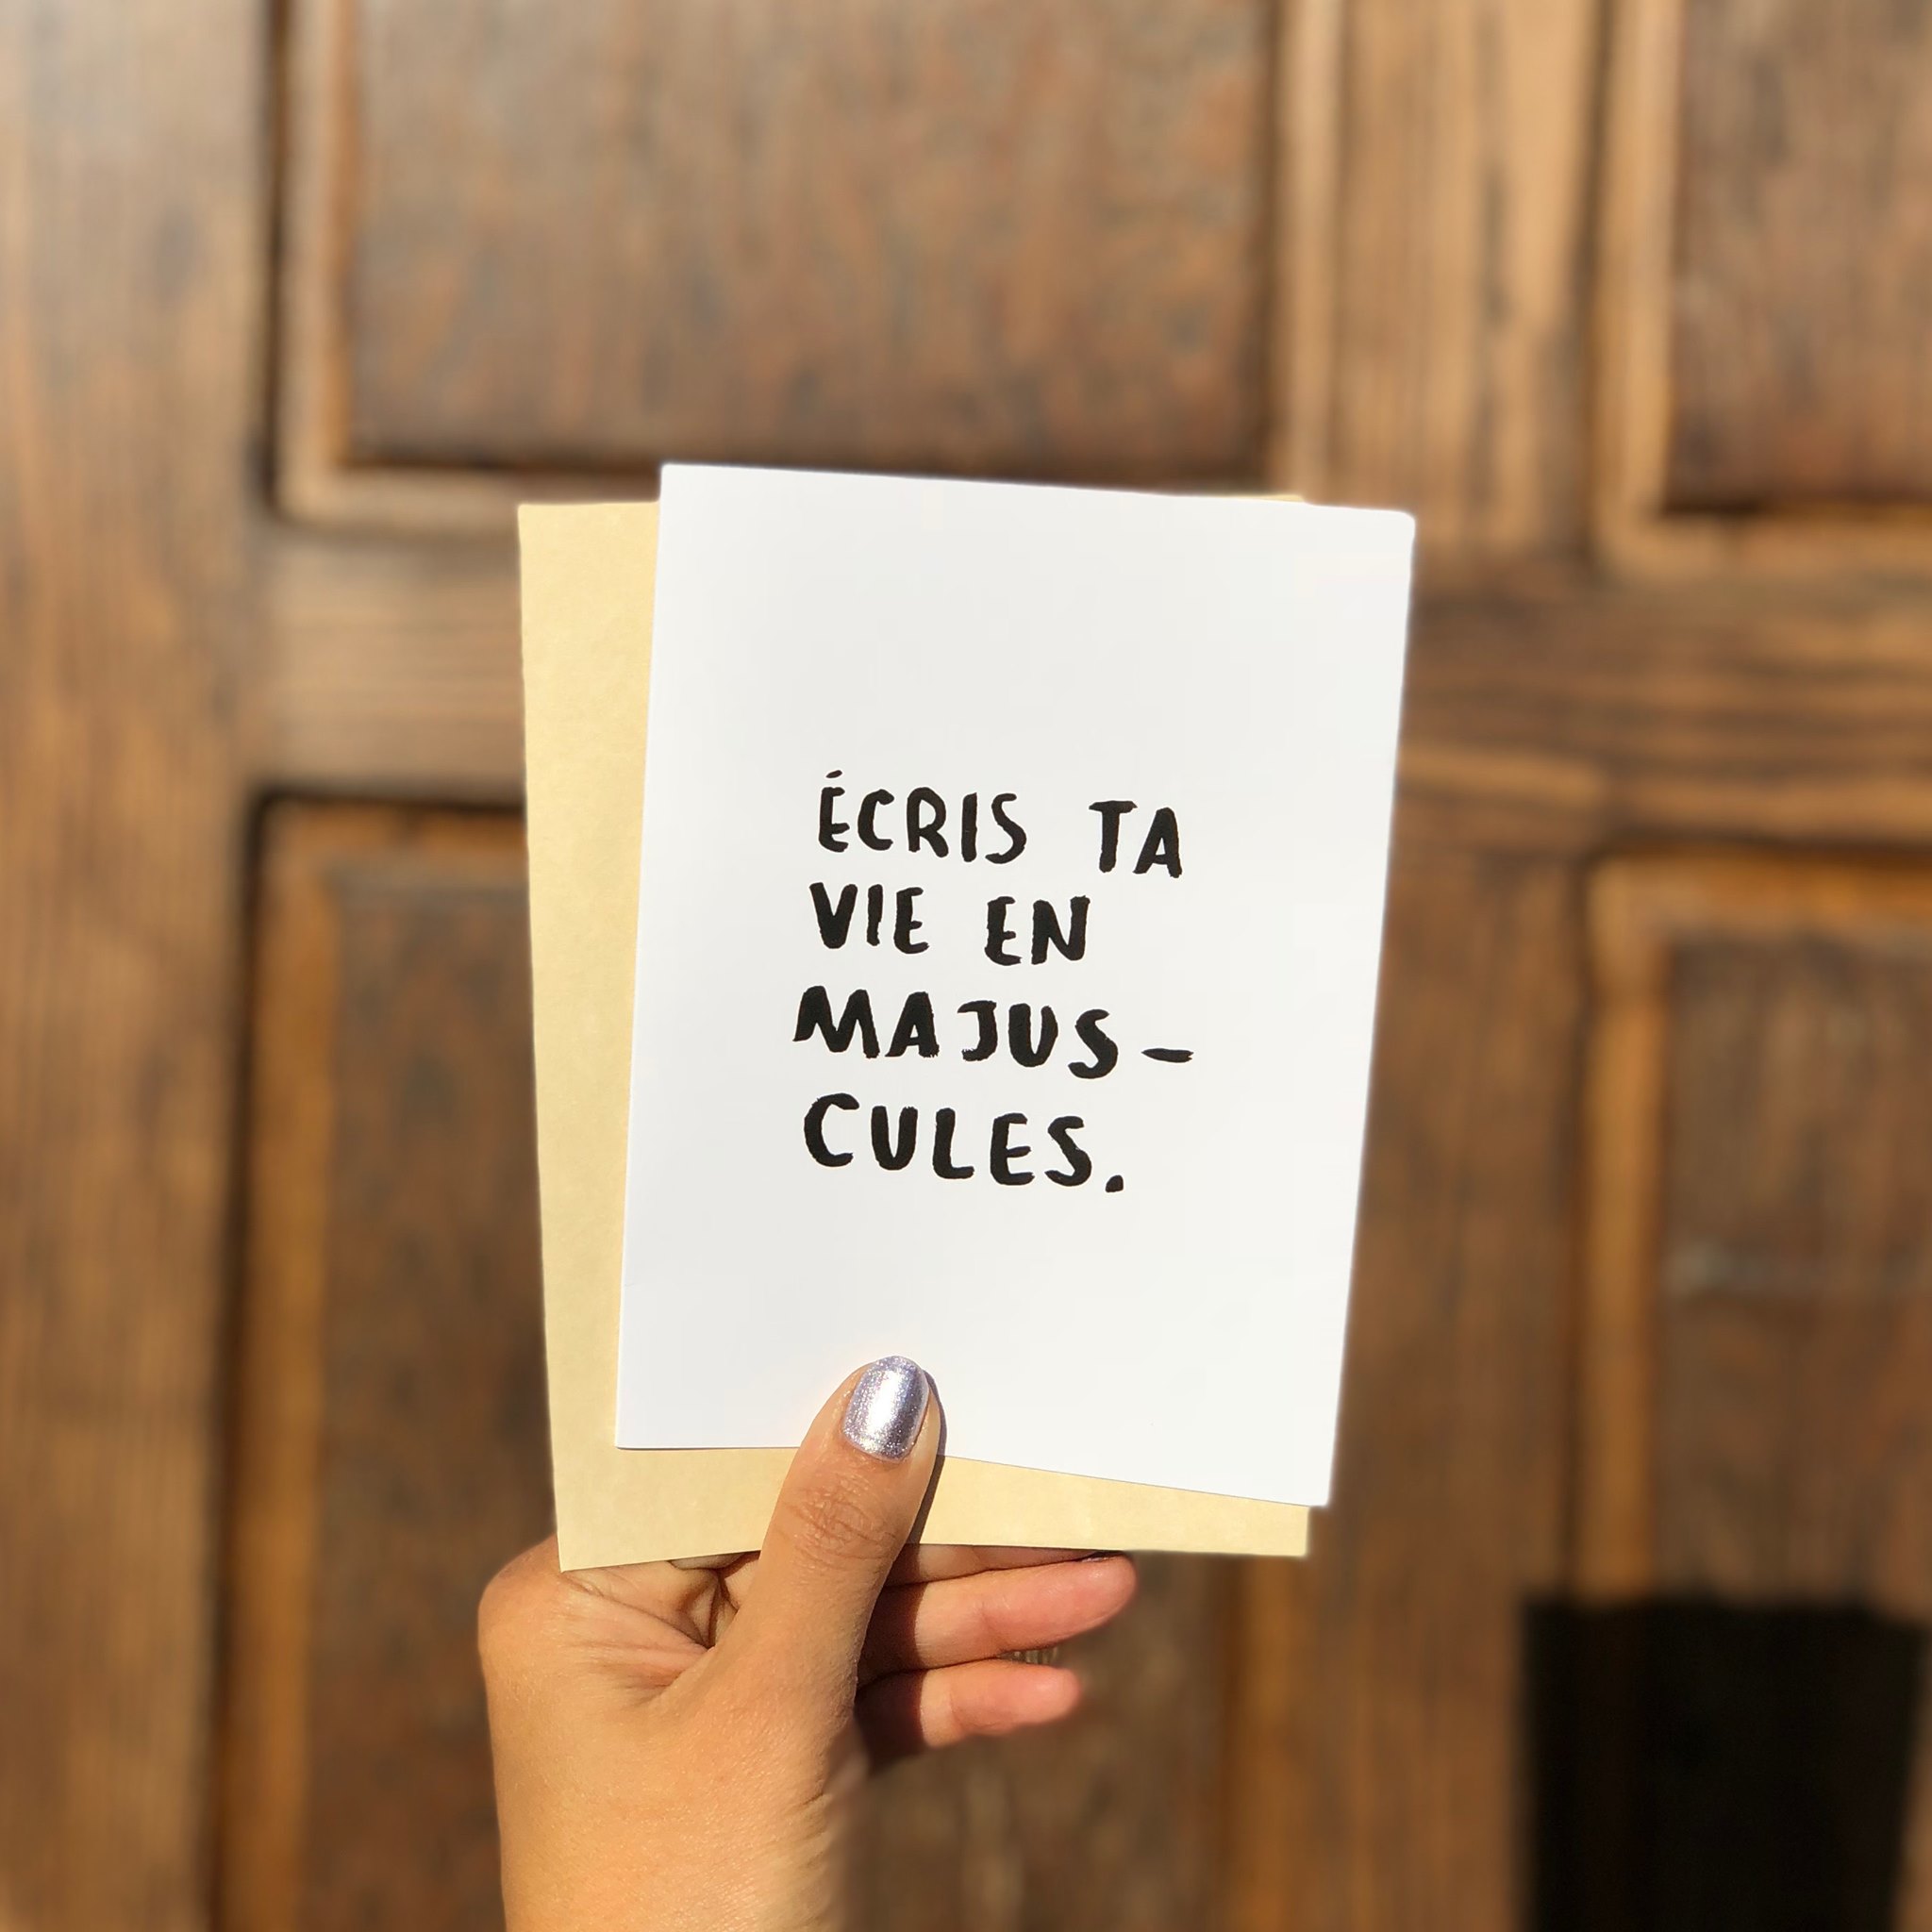 ÉCRIS TA
VIE EN
MAJUS-
CULES.